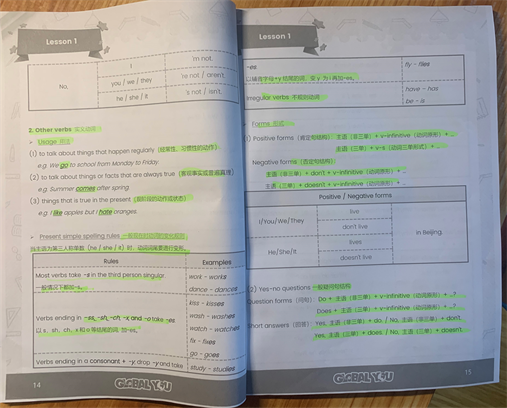 Lesson 1
No,
I
'm not.
you / we / they
're not / aren't.
he / she / it
's not / isn't.
2. Other verbs 实义动词
Usage 用法
(1) to talk about things that happen regularly (经常性、习惯性的动作)
e.g. We go to school from Monday to Friday.
(2) to talk about things or facts that are always true (客观事实或普遍真理)
e.g. Summer comes after spring.
(3) things that is true in the present (现阶段的动作或状态)
e.g. I like apples but I hate oranges.
Present simple spelling rules 一般现在时动词的变化规则
当主语为第三人称单数 (he / she / it) 时，动词词尾要进行变形。
Rules
Examples
Most verbs take -s in the third person singular.
一般情况下都加-s。
work - works
dance - dances
Verbs ending in -ss, -sh, -ch, -x and -o take -es.
以 s、sh、ch、x 和 o 等结尾的词, 加-es。
kiss - kisses
wash - washes
watch - watches
fix - fixes
go - goes
Verbs ending in a consonant + -y: drop -y and take
study - studies
14
GLOBAL YOU
Lesson 1
-es
以辅音字母+y 结尾的词，变 y 为 i 再加-es。
fly - flies
Irregular verbs 不规则动词
have - has
be - is
Forms 形式
(1) Positive forms (肯定句结构): 主语 (非三单) + v-infinitive (动词原形) + ...
主语 (三单) + v-s (动词三单形式) + ...
Negative forms (否定句结构):
主语 (非三单) + don't + v-infinitive (动词原形) + ...
主语 (三单) + doesn't + v-infinitive (动词原形) + ...
Positive / Negative forms
I/You/We/They
live
don't live
He/She/It
lives
doesn't live
in Beijing.
(2) Yes-no questions 一般疑问句结构
Question forms (问句): Do + 主语 (非三单) + v-infinitive (动词原形) + ...?
Does + 主语 (三单) + v-infinitive (动词原形) + ...?
Short answers (回答): Yes, 主语 (非三单) + do. / No, 主语 (非三单) + don't.
Yes, 主语 (三单) + does. / No, 主语 (三单) + doesn't.
GLOBAL YOU
15